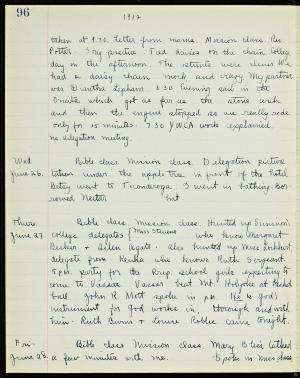 96
1912
taken at 1.30. Letter from mama. Mission class. Rev.
Potter. Song practice. Tied daisies on the chain College
day in the afternoon. The stunts were clever. We
had a daisy chain, mock and crazy. My partner
was Dentha Lephans. 6.30 Evening sail in the
Oneita which got as far as the stone arch
and then the engine stopped so we really rode
only for 15 minutes. 7.30 YWCA work explained.
no delegation meeting.
Wed. Bible class. Mission class. Delegation picture
June 26. taken under the apple tree in front of the Hotel
Betsy went to Ticonderoga. I went in bathing. Bor-
rowed hat.
Thurs. Bible class. Mission class. Hunted up
June 27. college delegates Miss Stevens who knew Margaret
Becker + Aileen Agate. Also hunted up Miss
delegate from Keuka who knows Ruth Sergeant.
5 P.M. party for the Prep school girls expecting to
come to Vassar. Vassar beat Mt. Holyoke at basket
ball. John R. Mott spoke in P.M. He is God's
instrument for God works in, through and with
him. Ruth Burns + Louise Roblee came tonight.
Fri. Bible class Mission class. Mary Bliss talked
June 28. a few minutes with me. spoke in miss. class.